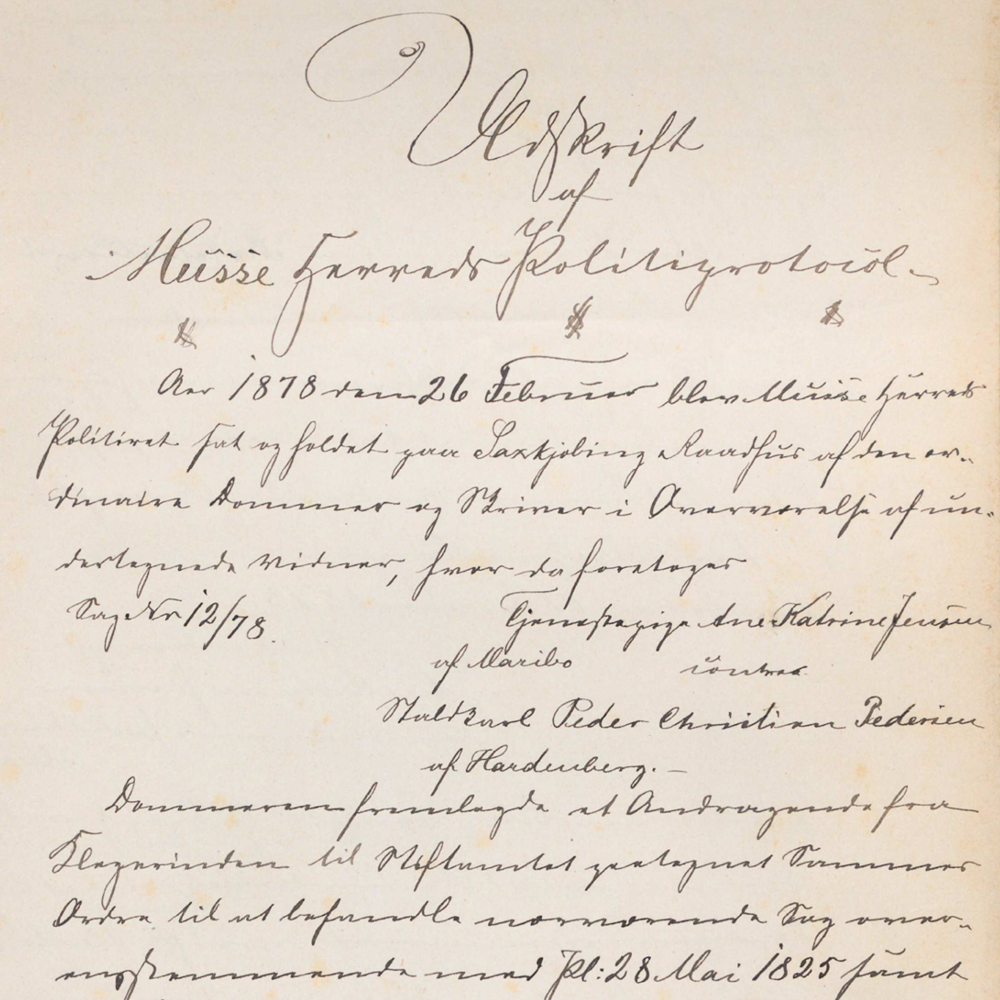 Udskrift
af
Musse Herreds Politiprotocol.
Aar 1878 den 26 Februar blev Musse Herreds
Politiret sat og holdet paa Saxkjøbing Raadhus af den or-
dinaire Dommer og Skriver i Overværelse af un-
dertegnede Vidner, hvor da foretoges
Sag Nr 12/78.
Tjenestepige Ane Katrine Jensen
af Maribo contra
Staldkarl Peder Christian Pedersen
af Hardenberg. -
Dommeren fremlagde et Andragende fra
Klagerinden til Stiftamtet paategnet Sammes
Ordre til at behandle nærværende Sag over-
ensstemmende med Pl: 28 Mai 1825 samt